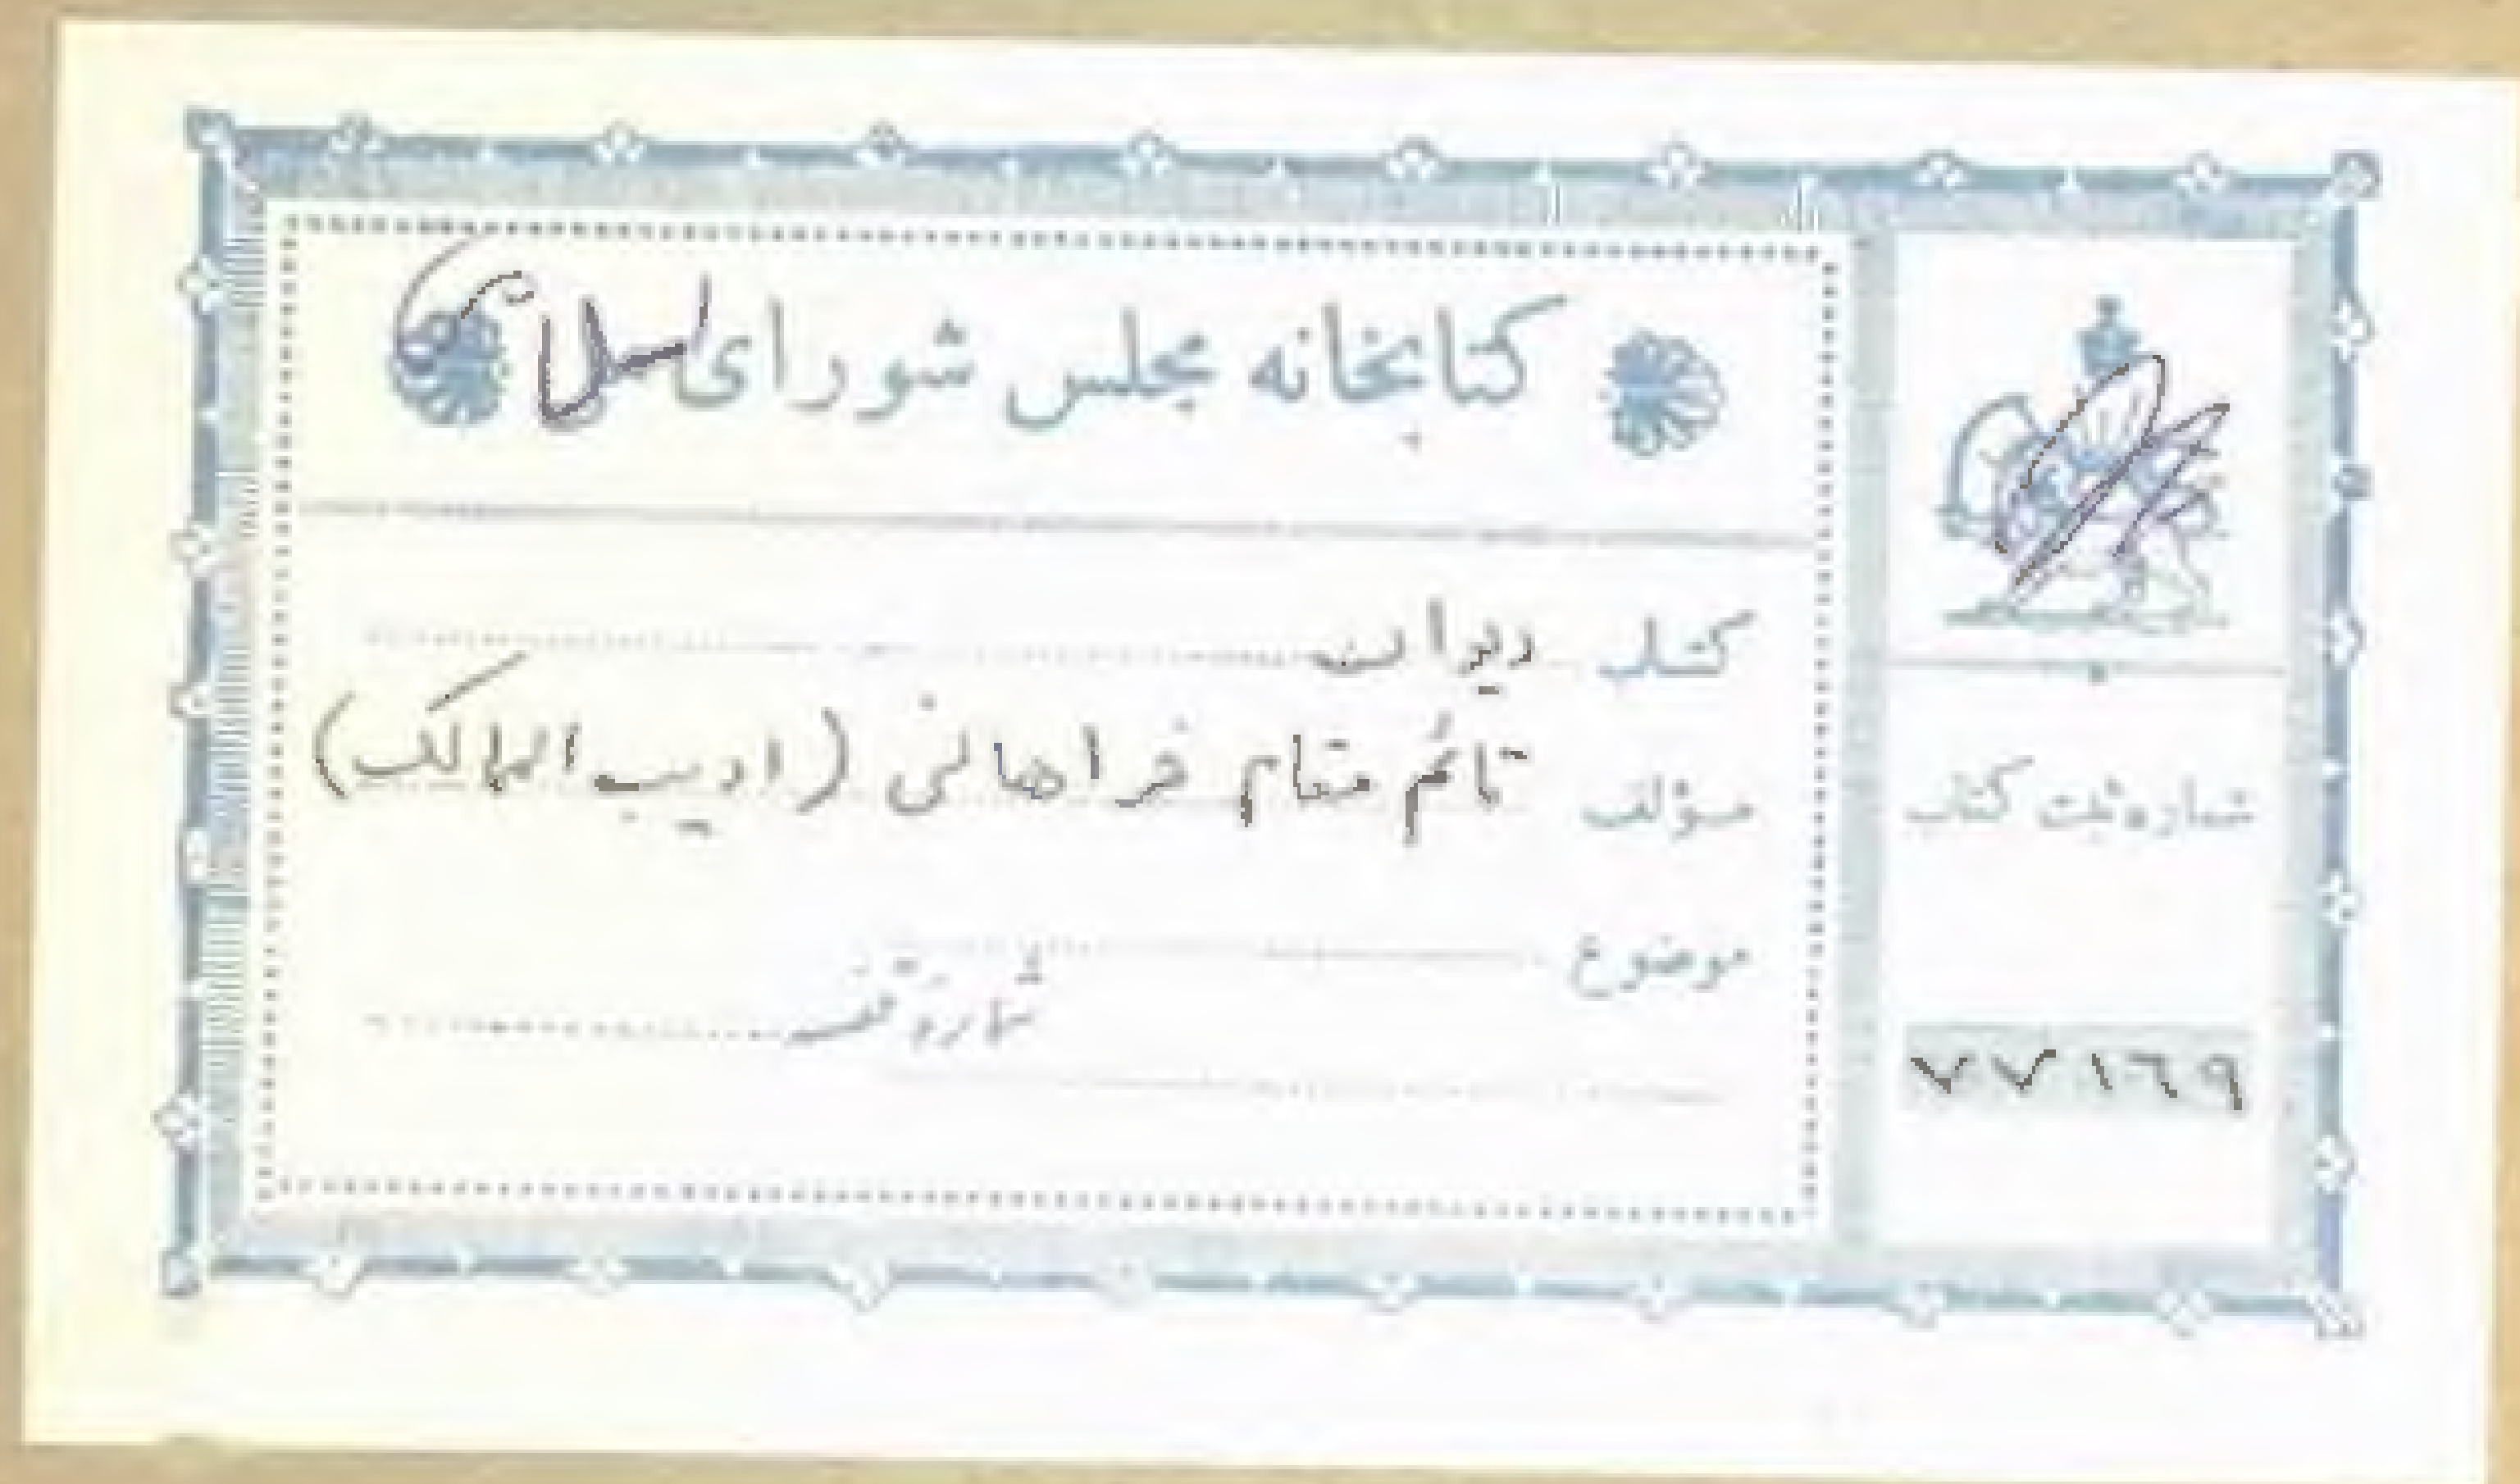 کتابخانه مجلس شورای اسلامی
کتاب دیوان
مؤلف قائم مقام فراهانی (ادیب الممالک)
موضوع
شماره قفسه
شماره ثبت کتاب
۷۷۱۶۹